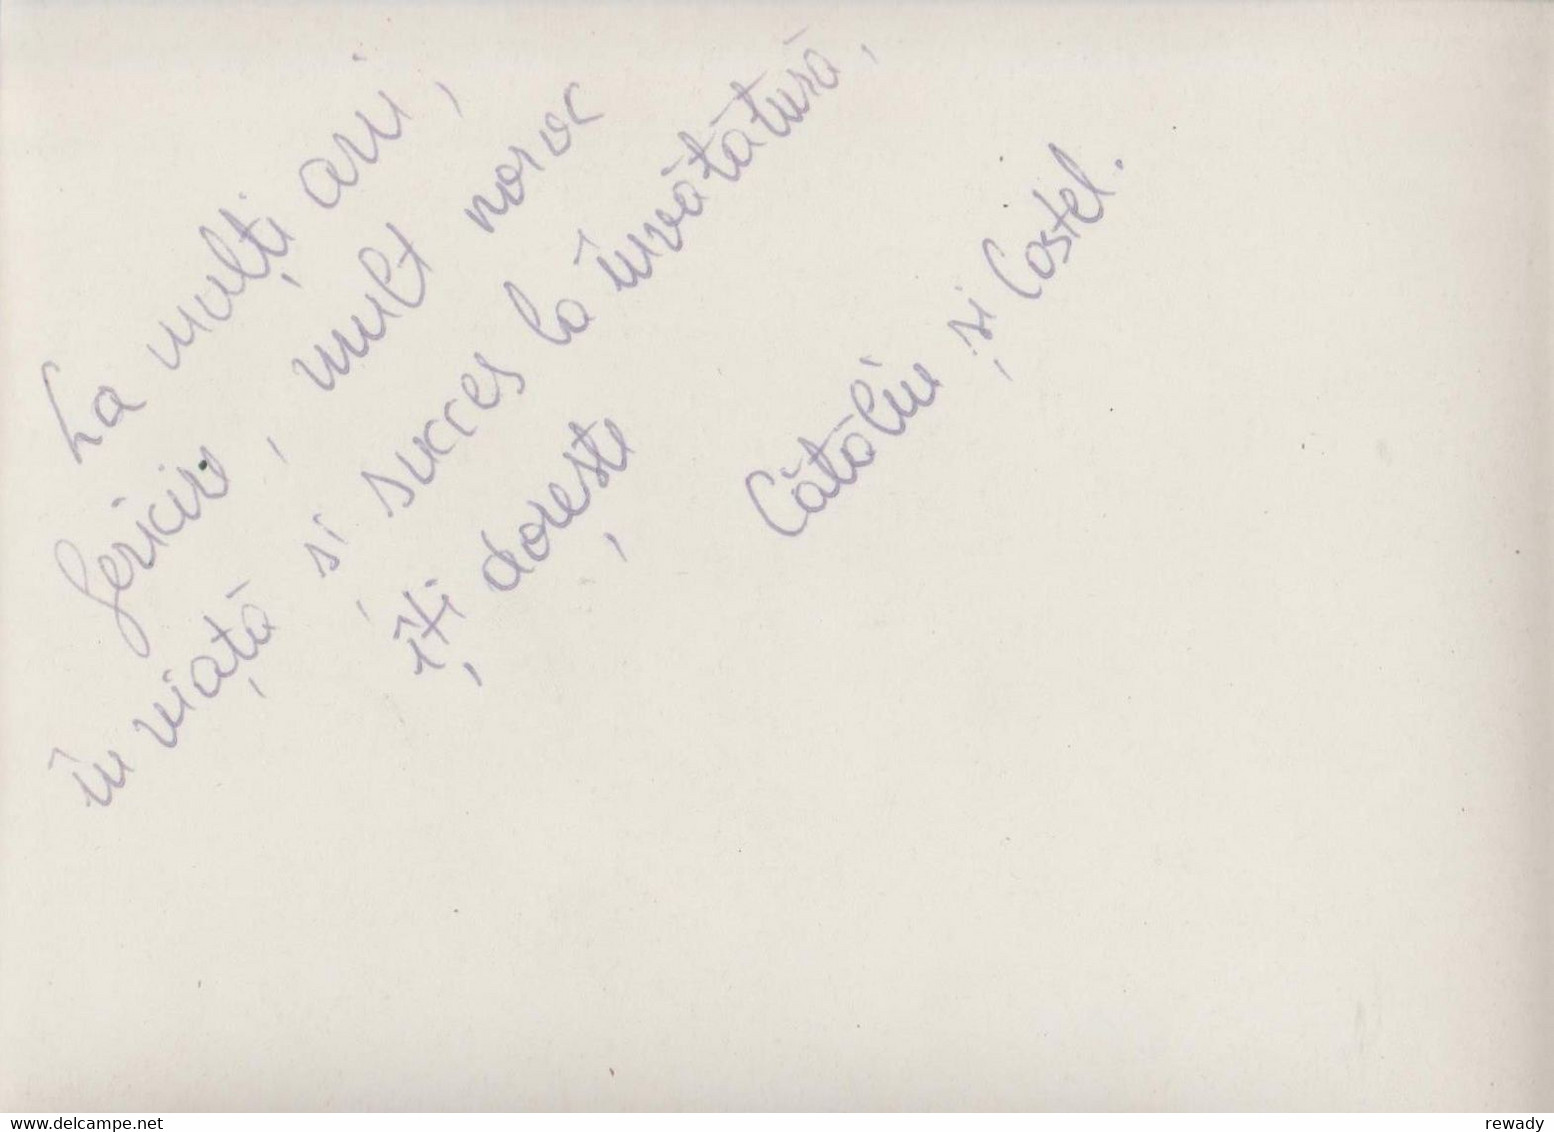 La mulți ani,
fericire, mult noroc
în viață și succes la învățătură,
îți dorește
Cătălin și Costel.
www.delcampe.net
rewady